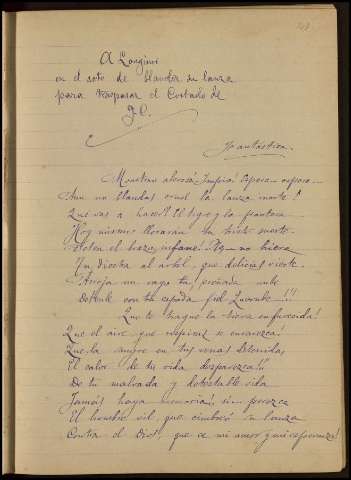 A Longinos
en el acto de blandir su lanza
para traspasar el Costado de
J.C.
Fantástica.
Monstruo atroz! Impío! Espera espera
Aun no blandas cruel la lanza
Que vas a hacer? El tigre y la pantera
Hoy mismos llorarán tu triste suerte.
el brazo, infame! No hiera
Tu diestra al árbol, que delicias vierte.
Arroja un rayo tu preñada nube
con tu espada fiel Querube!!!
Que te trague la tierra enfurecida!
Que el aire que respiras se enrarezca!
Que la sangre en tus venas detenida,
El calor de tu vida desparezca!!
De tu malvada y detestable vida
Jamás haya memoria! si perezca
El hombre vil, que cimbreó su lanza
Contra el Dios, que es mi amor y mi esperanza!